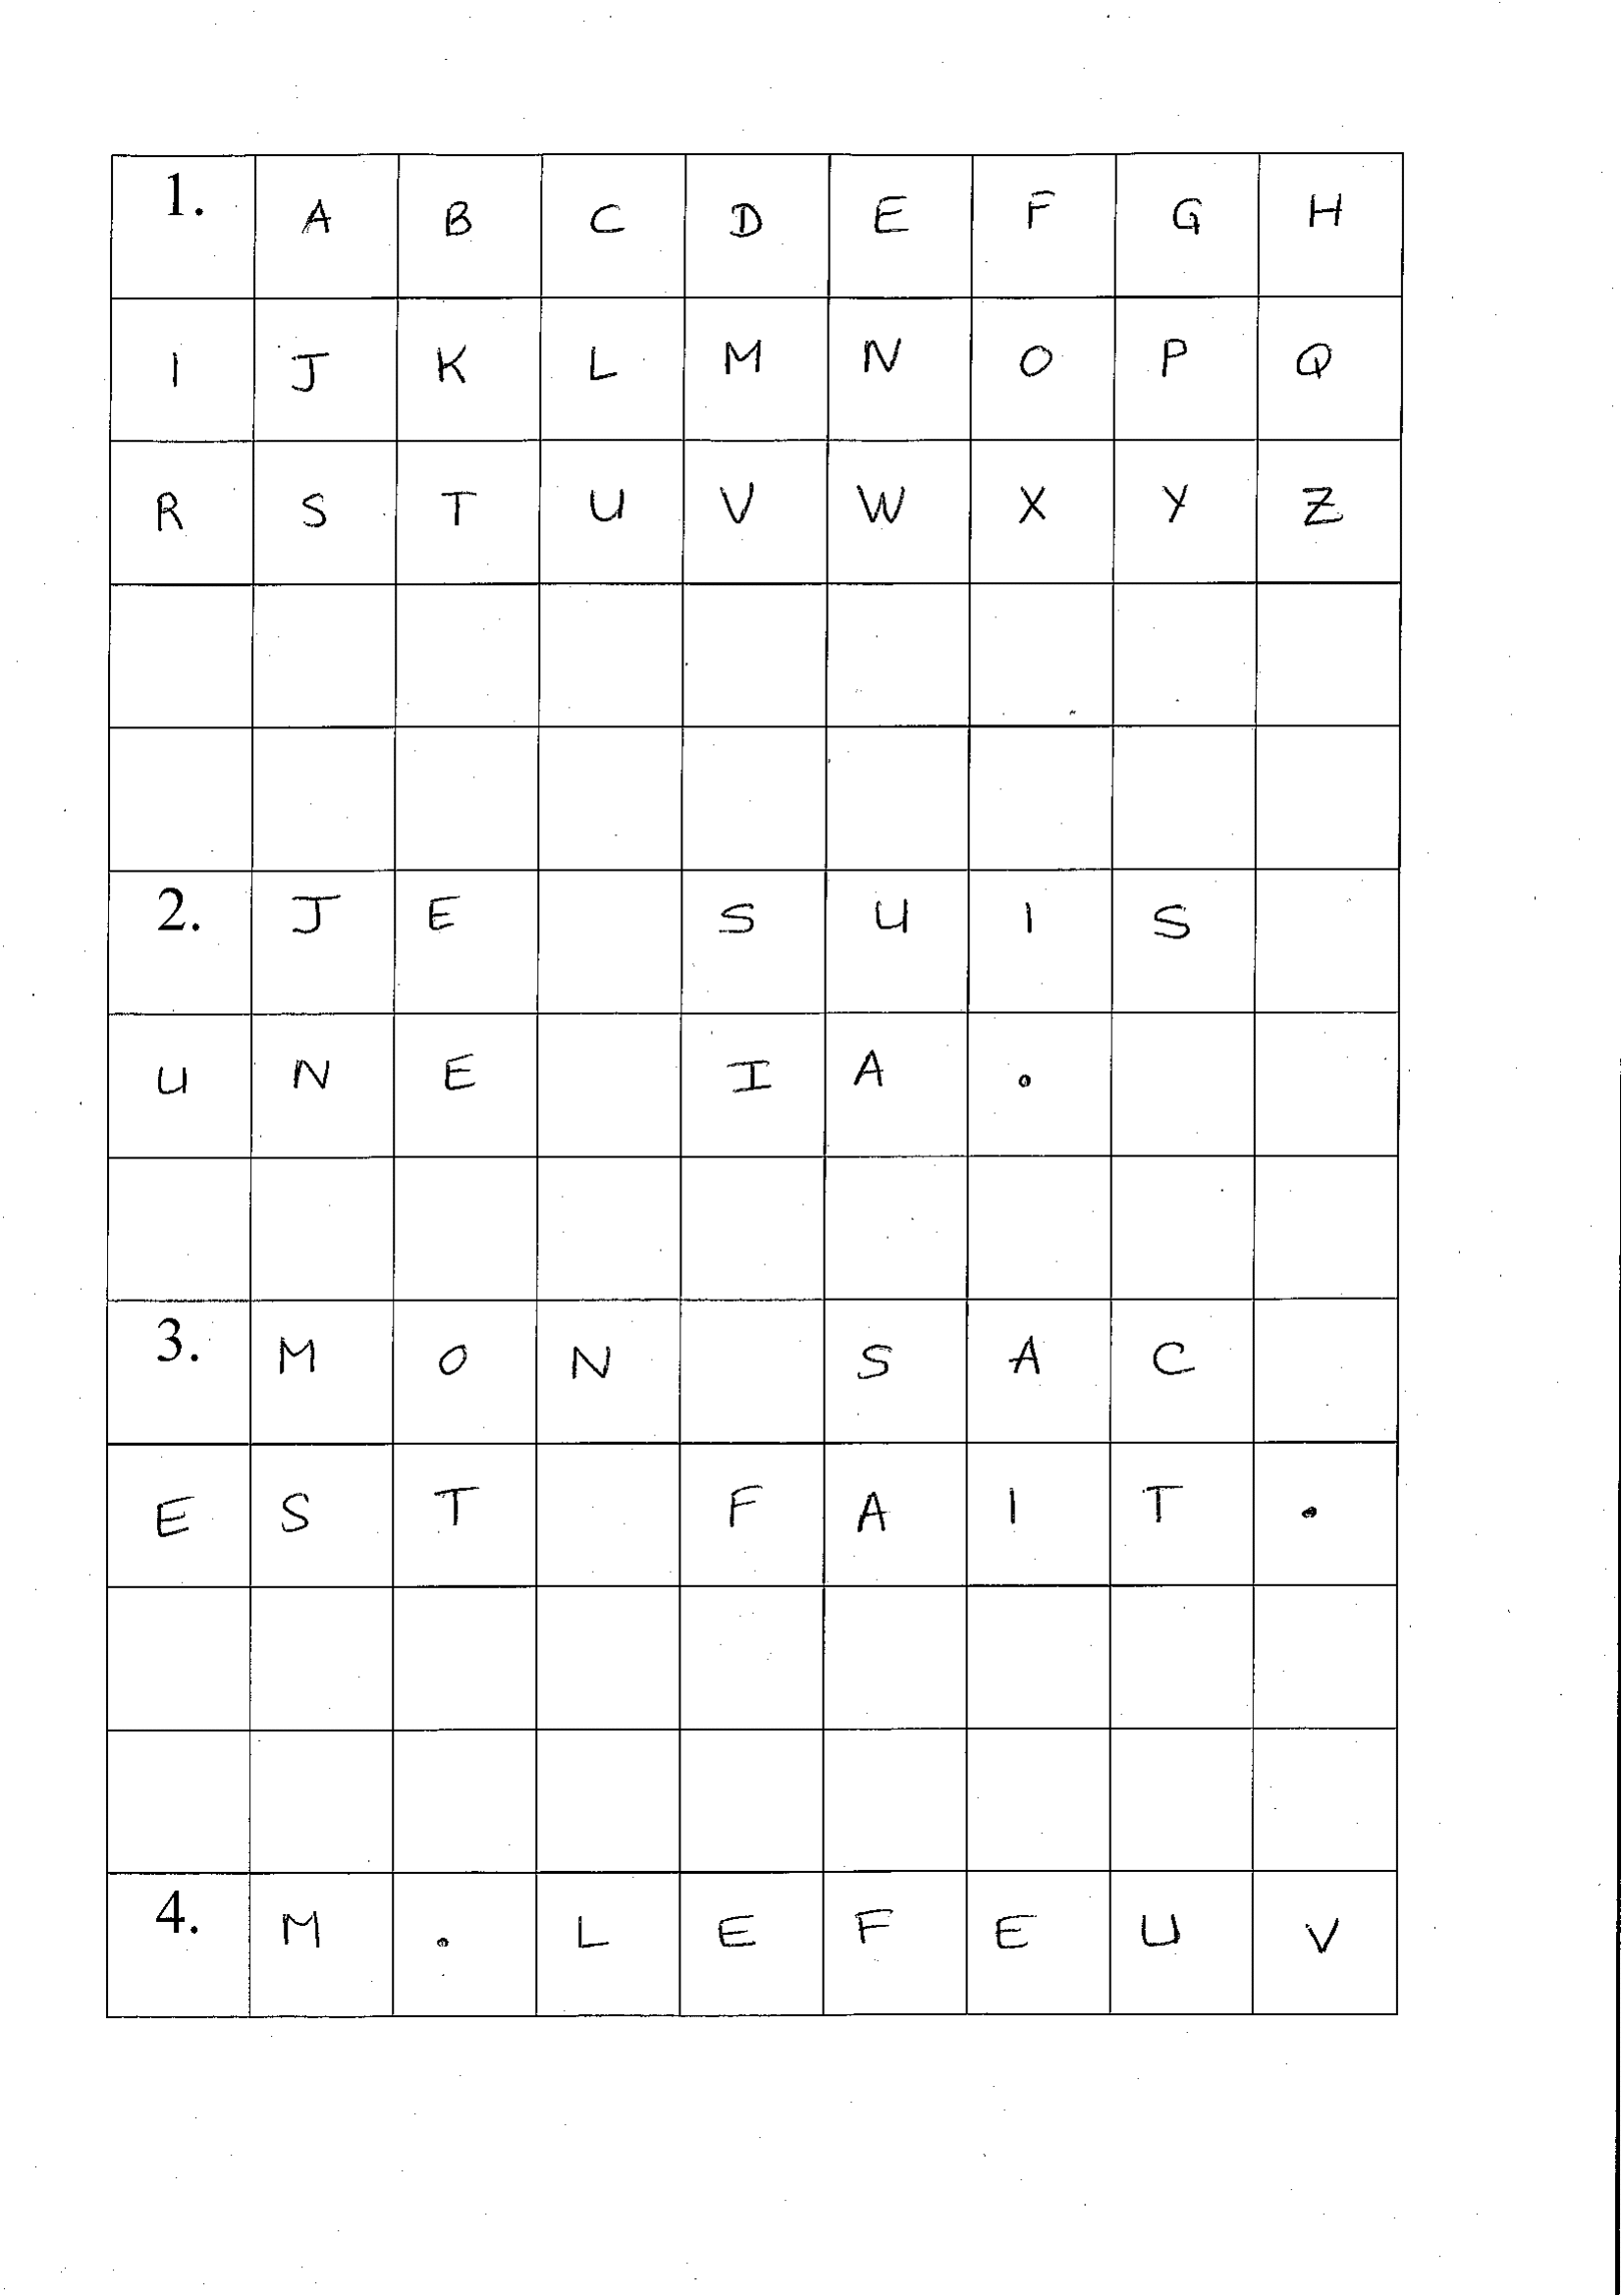 1. A B C D E F G H
I J K L M N O P Q
R S T U V W X Y Z
2. J E S U I S
U N E I A .
3. M O N S A C
E S T F A I T .
4. M . L E F E U V